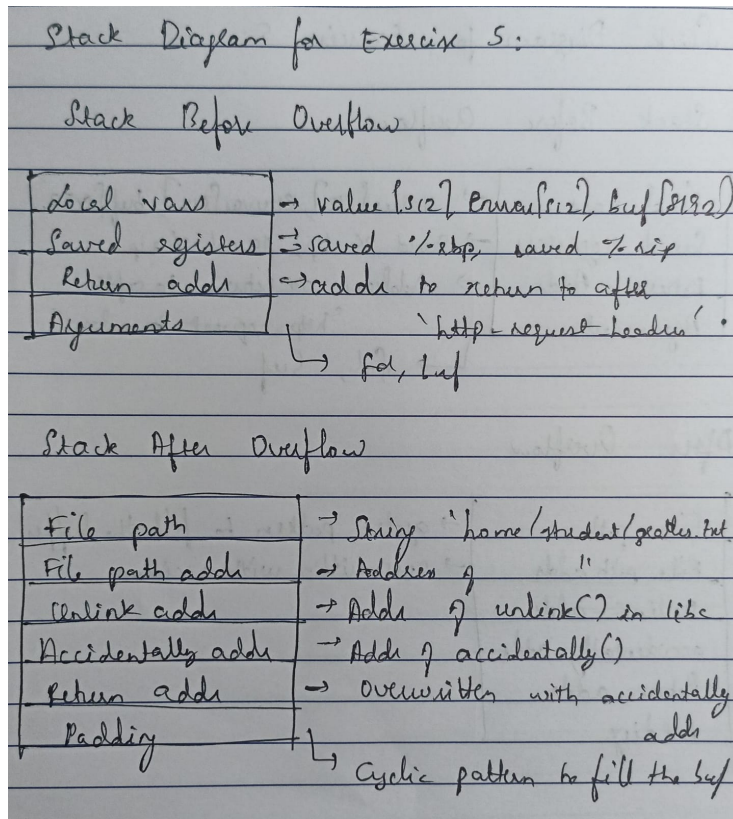 Stack Diagram for Exercise 5:
Stack Before Overflow
Local vars → value[512] Envvar[512], buf[8192]
Saved registers → saved %rbp, saved %rip
Return addr → addr to return to after
Arguments 'http-request-headers'.
→ fd, buf
Stack After Overflow
File path → String "home/student/grades.txt
File path addr → Address of "
Unlink addr → Addr of unlink() in libc
Accidentally addr → Addr of accidentally()
Return addr → Overwritten with accidentally
Padding addr
→ Cyclic pattern to fill the buf